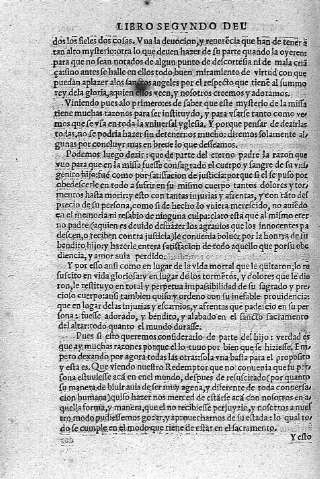 LIBRO SEGVNDO DEL
dos los fieles dos cosas. Vna la deuocion, y reuerẽcia que han de tener a
tan alto mysterio: otra lo que deuen hazer de su parte quando la oyeren
para que no sean notados de algun punto de descortesia ni de mala criã
ça: sino antes se halle en ellos todo buen miramiento de virtud con que
puedan aplazer alos sanctos angeles por el respecto que tienẽ al summo
rey dela gloria, aquien ellos veen, y nosotros creemos y adoramos.
Viniendo pues alo primero: es de saber que este mysterio de la missa
tiene muchas razones para ser instituydo, y para vsarse tanto como ve-
mos que se vsa en toda la vniuersal yglesia. Y porque pensar de dezirlas
todas, no se podria hazer sin detenernos mucho: diremos solamente al-
gunas por concluyr mas en breue lo que desseamos.
Podemos luego dezir: que de parte del eterno padre la razon que
vuo para que en la missa fuesse consagrado el cuerpo y sangre de su vni-
genito hijo: fue como por satisfacion de justicia: porque si el se puso por
obedescerle en todo a sufrir en su mismo cuerpo tantos dolores y tor-
mentos hasta morir, y esto con tantas injurias y afrentas, y con tãto del
precio de su persona, como si de hecho lo vuiera merescido, no auiẽdo
en el memoria ni resabio de ninguna culpa: claro esta que al mismo eter
no padre (aquien es deuido deshazer los agrauios que los innocentes pa
descen, o resciben contra justicia) le conuenia boluer por la honrra de su
bendito hijo: y hazerle entera satisfacion de todo aquello que por su obe
diencia, y amor auia perdido.
Y por esto assi como en lugar de la vida mortal que le quitaron, lo re
suscito en vida gloriosa: y en lugar delos tormẽtos, y dolores que le die
ron, le restituyo en total y perpetua impassibilidad de su sagrado y pre-
cioso cuerpo: assi tambien quiso y ordeno con su inefable prouidencia:
que en lugar delas injurias y escarnios, y afrentas que padescio en su per
sona: fuesse adorado, y bendito, y alabado en el sancto sacramento
del altar: todo quanto el mundo durasse.
Pues si esto queremos considerarlo de parte del hijo: verdad es
que ay muchas razones porque el lo tuuo por bien que se hiziesse. Em-
pero dexando por agora todas las otras: sola vna basta para el proposito
y esta es. Que viendo nuestro Redemptor que no conuenia que su per
sona estuuiesse aca en el mundo, despues de resuscitado (por quanto
su manera de biuir auia de ser muy agena, y diferente de toda conuersa-
cion humana) quiso hazer nos merced de estarse aca con nosotros en a-
quella forma, y manera, que el no recibiesse perjuyzio, y nosotros a nues
tro modo pudiessemos gozar, y aprouecharnos de su estada: lo qual to-
do se cumple en el modo que tiene de estar en el sacramento.
Y esto